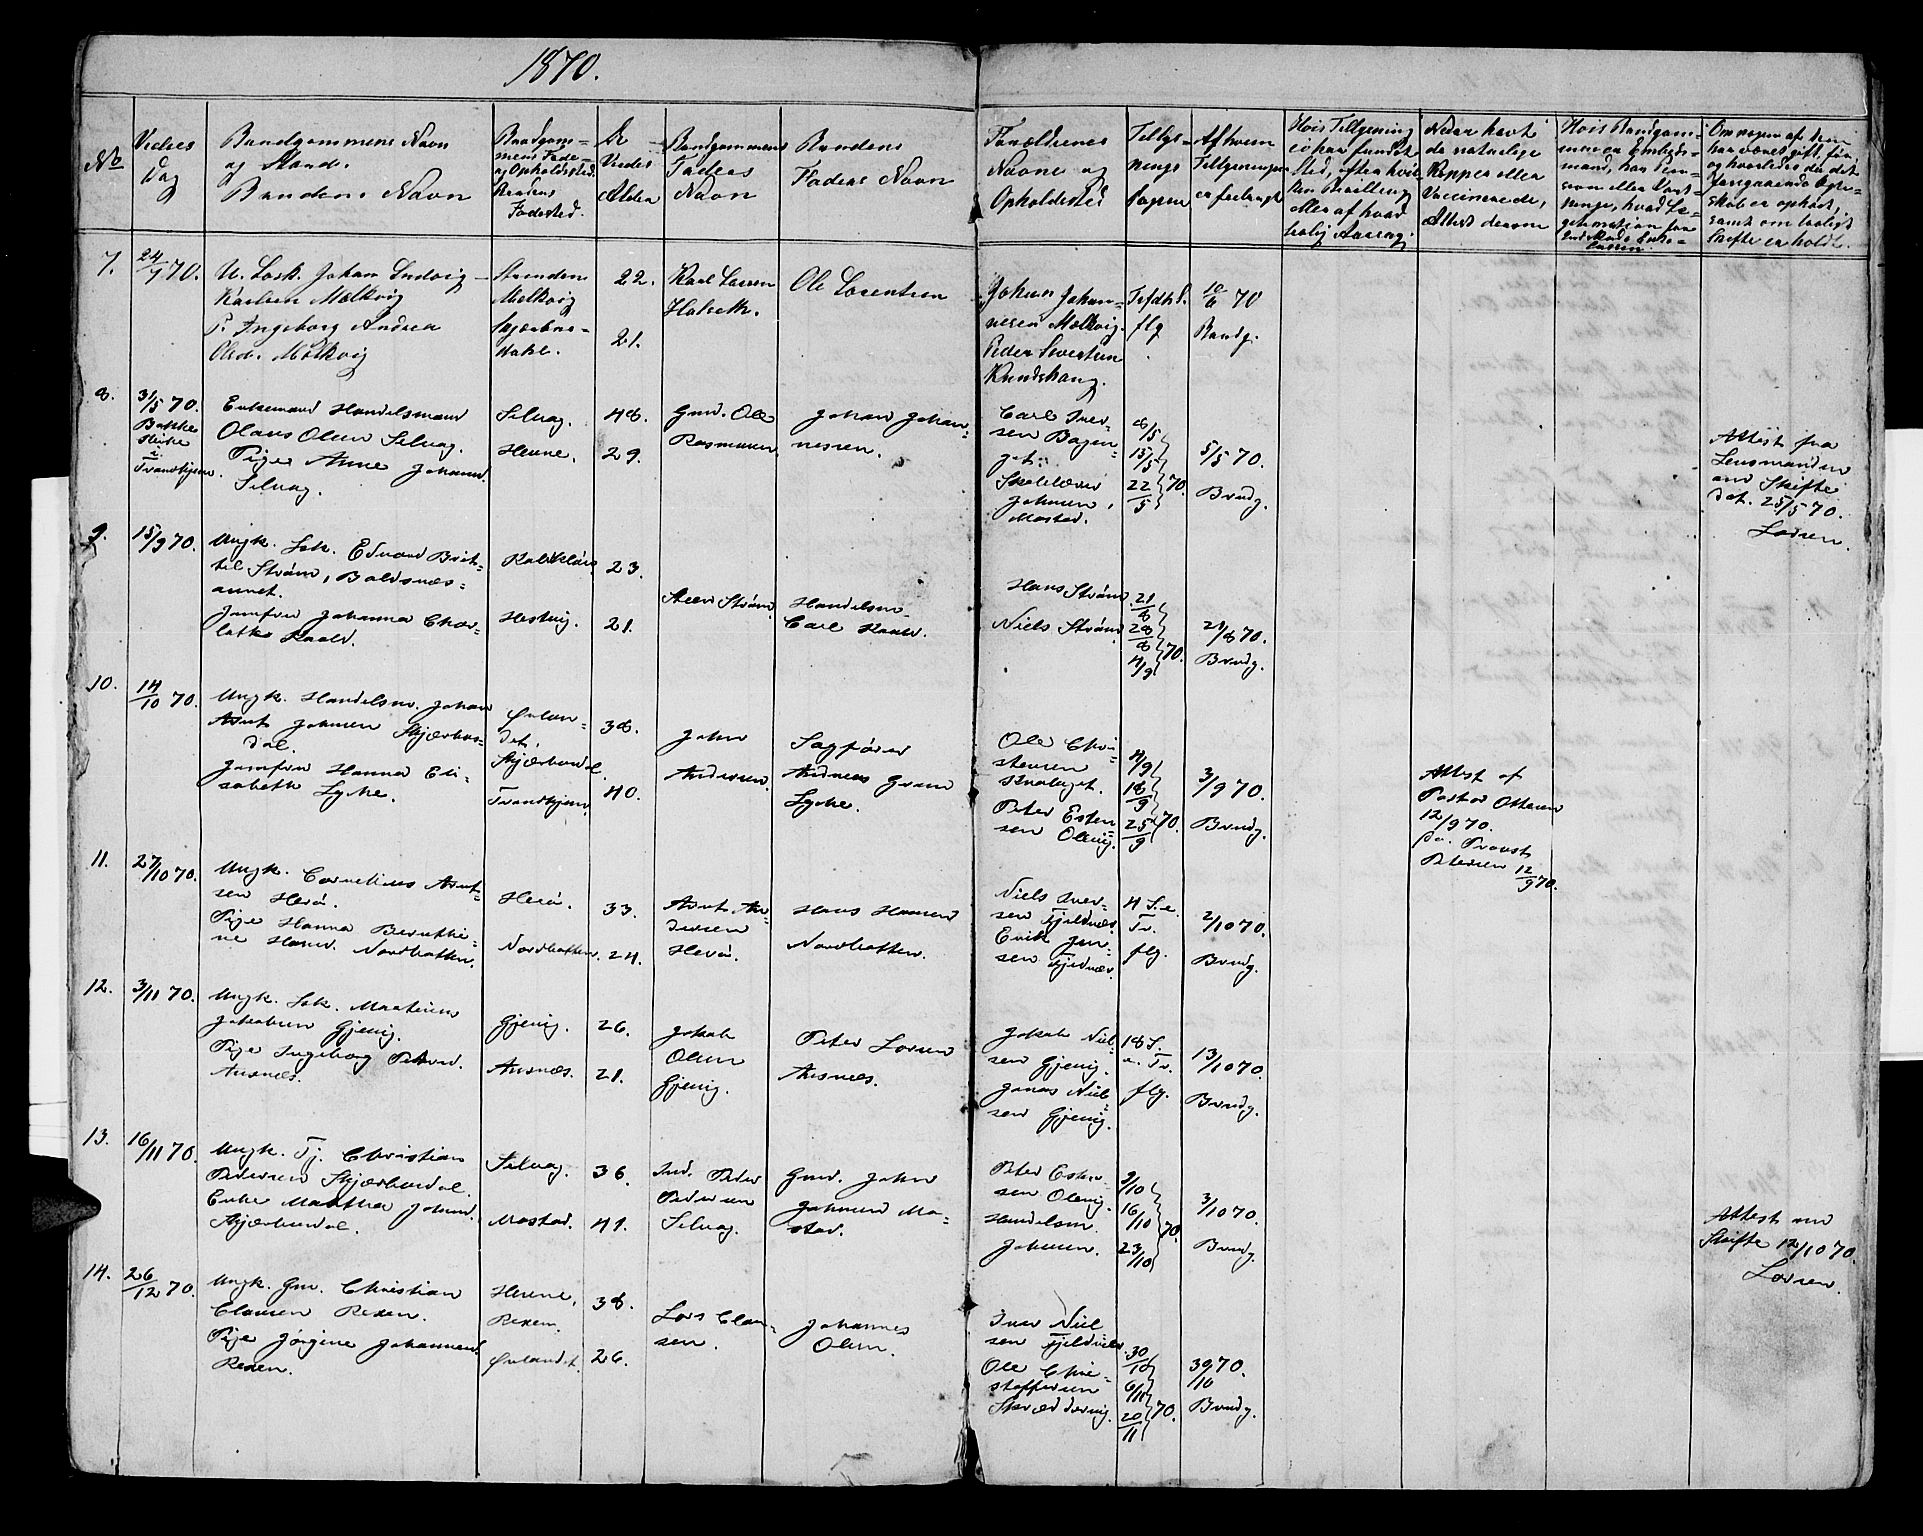 1870.
No
Vielses
Dag
Brudgommens Navn
og Stand.
Brudens Navn
Brudgom-
mens Føde-
og Opholdssted.
Brudens
Fødested.
Vielses
Alder
Brudgommens
Faders
Navn
Brudens
Faders Navn
Forældrenes
Navne og
Opholdssted
Tillys-
nings
dagene
Af hvem
Tillysningen
er forlangt
Hvis Tillysning
ei har fundet
Sted, efter hvil-
ken Bevilling
eller af hvad
lovlig Aarsag.
Naar havt
de naturlige
Kopper eller
Vaccinerede,
Attest derom
Om nogen af dem
har været gift før,
og hvorledes da det
foregaaende Ægte-
skab er ophørt,
samt om lovligt
Skifte er holdt.
7.
24/7 70.
U. Losk. Johan Ludvig
Karlsen Mælkvig
P. Ingeborg Andrea
Olsd. Mælkvig
Mælkvig
Skjærbus-
dahl.
22.
21.
Karl Larsen
Halseth.
Ole Lorentsen
Johan Johan-
nesen Mælkvig.
Peder Sivertsen
flg
70
Brudg.
8.
31/5 70.
Bakke
Kirke
i
Trondhjem.
Enkemand Handelsmand
Olaus Olsen Selvag.
Pige Anne Johansd.
Selvag.
Selvag.
Hevne.
48.
29.
Gmd. Ole
Rasmussen
Johan Johan-
nessen.
Carl Iver-
sen Bagen-
get.
Skolelærer
Johnsen,
Mostad.
8/5
15/5
22/5
70.
5/5 70.
Brudg.
Attest fra
Lensmanden
om Skifte
dat. 25/5 70.
Larsen.
9.
15/9 70.
Ungk. Losk. Edvard Brit-
til Strøm, Baldsnæs-
aunet.
Jomfru Johanna Char-
lotte Kaald.
Hestvig.
23.
21.
Strøm.
Handelsm.
Carl Kaald.
Hans Strøm
Niels Strøm
21/8
28/8
4/9
70.
21/8 70.
Brudg.
10.
14/10 70.
Ungk. Handelsm. Johan
Arnt Johnsen Skjærbus-
dal.
Jomfru Hanna Eli-
sabeth Lyche.
Ørlan-
det,
Skjærbusdal.
Trondhjem.
38.
40.
John
Andersen.
Sagfører
Andreas Gram
Lyche.
Ole Chri-
stensen
Peter Esten-
sen Olvig.
4/9
18/9
25/9
70.
3/9 70.
Brudg.
Attest af
Pastor Ottesen
12/9 70.
do. Provst
Petersen 12/9 70.
11.
27/10 70.
Ungk. Cornelius Arnt-
sen Herø.
Pige Hanna Bernthi-
ne Hansd. Nordbotten.
Herø.
Nordbotten.
33.
24.
Arnt An-
dersen
Herø.
Hans Hansen
Nordbotten.
Niels Iver-
sen Fjeldvær.
Erik Jen-
sen Fjeldvær.
4 S. e.
Tr.
flg.
2/10 70.
Brudg.
12.
3/11 70.
Ungk. Losk. Martinus
Jakobsen Gjevig.
Pige Ingeborg Petersd.
Ansnæs.
Gjevig.
Ansnæs.
26.
21.
Jakob
Olsen
Gjevig.
Peter Larsen
Ansnæs.
Jakob Niel-
sen Gjevig.
Jonas Niel-
sen Gjevig.
18 S.
e. Tr.
flg.
13/10 70.
Brudg.
13.
16/11 70.
Ungk. Tj. Christian
Pedersen Skjærbusdal.
Enke Martha Johnsd.
Skjærbusdal.
Selvag.
Mostad.
36.
41.
Ind. Peder
Pedersen
Selvag.
Gmd. John
Johnsen Mo-
stad.
Peter Esten-
sen Olvig.
Handelsm.
Johnsen.
9/10
16/10
23/10
70.
3/10 70.
Brudg.
Attest om
Skifte 12/10 70.
Larsen.
14.
26/12 70.
Ungk. Gm. Christian
Clausen Rexen.
Pige Jørgine Johannesd.
Rexen.
Hevne,
Rexen.
Ørlandet.
38.
26.
Lars Clau-
sen.
Johannes
Olsen.
Iver Niel
sen Fjeldvær
Ole Chri-
stoffersen
Skræddervig.
30/10
6/11
20/11
70.
30/10 70.
Brudg.